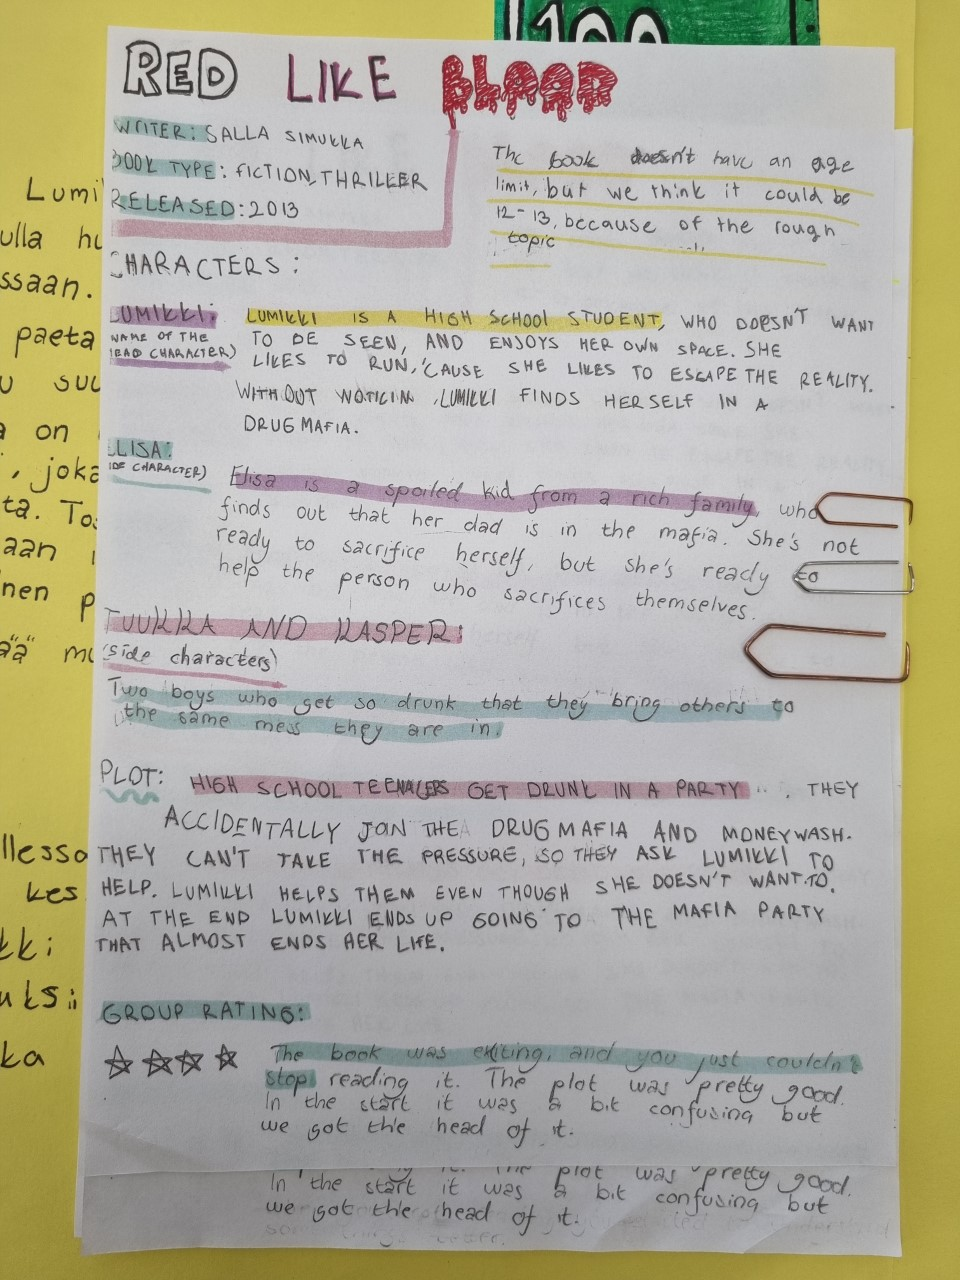 100
RED LIKE BLOOD
WRITER: SALLA SIMUKKA
BOOK TYPE: FICTION, THRILLER
RELEASED: 2013
The book doesn't have an age
limit, but we think it could be
12-13, because of the rough
topic
CHARACTERS:
LUMIKKI:
NAME OF THE
LEAD CHARACTER)
LUMIKKI IS A HIGH SCHOOL STUDENT, WHO DOESN'T WANT
TO BE SEEN, AND ENJOYS HER OWN SPACE. SHE
LIKES TO RUN, 'CAUSE SHE LIKES TO ESCAPE THE REALITY.
WITHOUT NOTICIN, LUMIKKI FINDS HERSELF IN A
DRUG MAFIA.
ELISA:
IDE CHARACTER)
Elisa is a spoiled kid from a rich family, who
finds out that her dad is in the mafia. She's not
ready to sacrifice herself, but she's ready to
help the person who sacrifices themselves.
TUUKKA AND KASPER:
(side characters)
Two boys who get so drunk that they bring others to
the same mess they are in.
PLOT: HIGH SCHOOL TEENAGERS GET DRUNK IN A PARTY . THEY
ACCIDENTALLY JOIN THE DRUG MAFIA AND MONEYWASH.
THEY CAN'T TAKE THE PRESSURE, SO THEY ASK LUMIKKI TO
HELP. LUMIKKI HELPS THEM EVEN THOUGH SHE DOESN'T WANT TO.
AT THE END LUMIKKI ENDS UP GOING TO THE MAFIA PARTY
THAT ALMOST ENDS HER LIFE.
GROUP RATING:
The book was exiting, and you just couldn't
stop reading it. The plot was pretty good.
In the start it was a bit confusing but
we got the head of it.
it. The plot was pretty good.
In the start it was a bit confusing but
we got the head of it.
Lumi
ulla hu
ssaan.
paeta
u suu
a on
, joka
ta. Tos
aan
nen p
ää mu
llesso
kes
kki
uksi:
ka